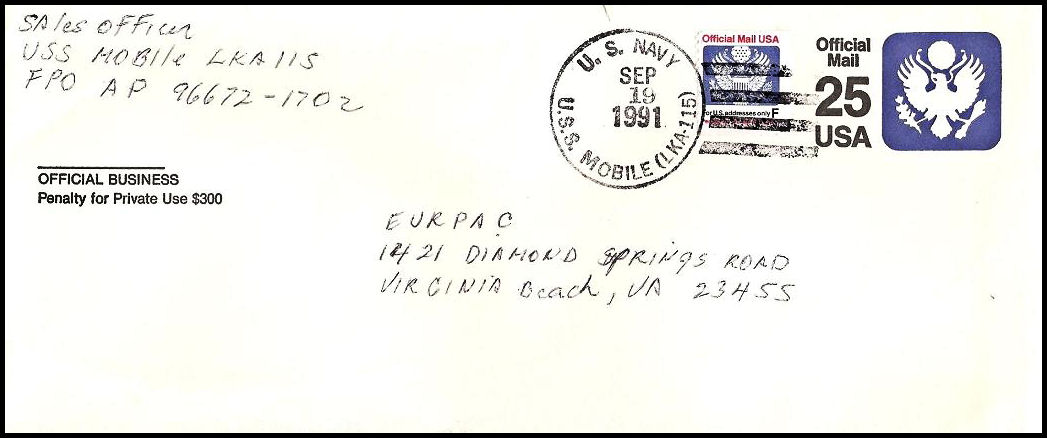 SAles OFFicer
USS MOBIle LKA 115
FPO AP 96672-1702
OFFICIAL BUSINESS
Penalty for Private Use $300
U. S. NAVY
SEP
19
1991
U.S.S. MOBILE (LKA-115)
Official Mail USA
For U.S. addresses only F
Official
Mail
25
USA
EURPAC
1421 DIAMOND SPRINGS ROAD
VIRGINIA Beach, VA 23455